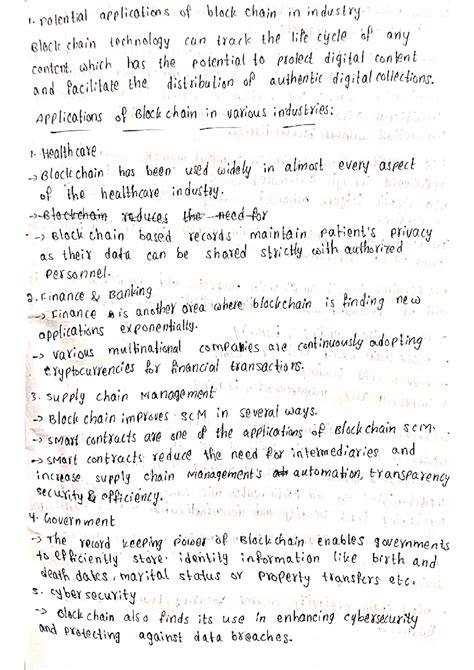 1. potential applications of block chain in industry
Block chain technology can track the life cycle of any
content, which has the potential to protect digital content
and facilitate the distribution of authentic digital collections.
Applications of Block chain in various industries:
1. Healthcare
→ Blockchain has been used widely in almost every aspect
of the healthcare industry.
→ Blockchain reduces the need for
→ Block chain based records maintain patient's privacy
as their data can be shared strictly with authorized
personnel.
2. Finance & Banking
→ Finance is another area where blockchain is finding new
applications exponentially.
→ various multinational companies are continuously adopting
cryptocurrencies for financial transactions.
3. Supply chain Management
→ Block chain improves SCM in several ways.
→ smart contracts are one of the applications of Blockchain SCM.
→ smart contracts reduce the need for intermediaries and
increase supply chain Management's automation, transparency
security & efficiency.
4. Government
→ The record keeping power of Blockchain enables governments
to efficiently store identity information like birth and
death dates, marital status or property transfers etc.
5. cybersecurity
→ Blockchain also finds its use in enhancing cybersecurity
and protecting against data breaches.